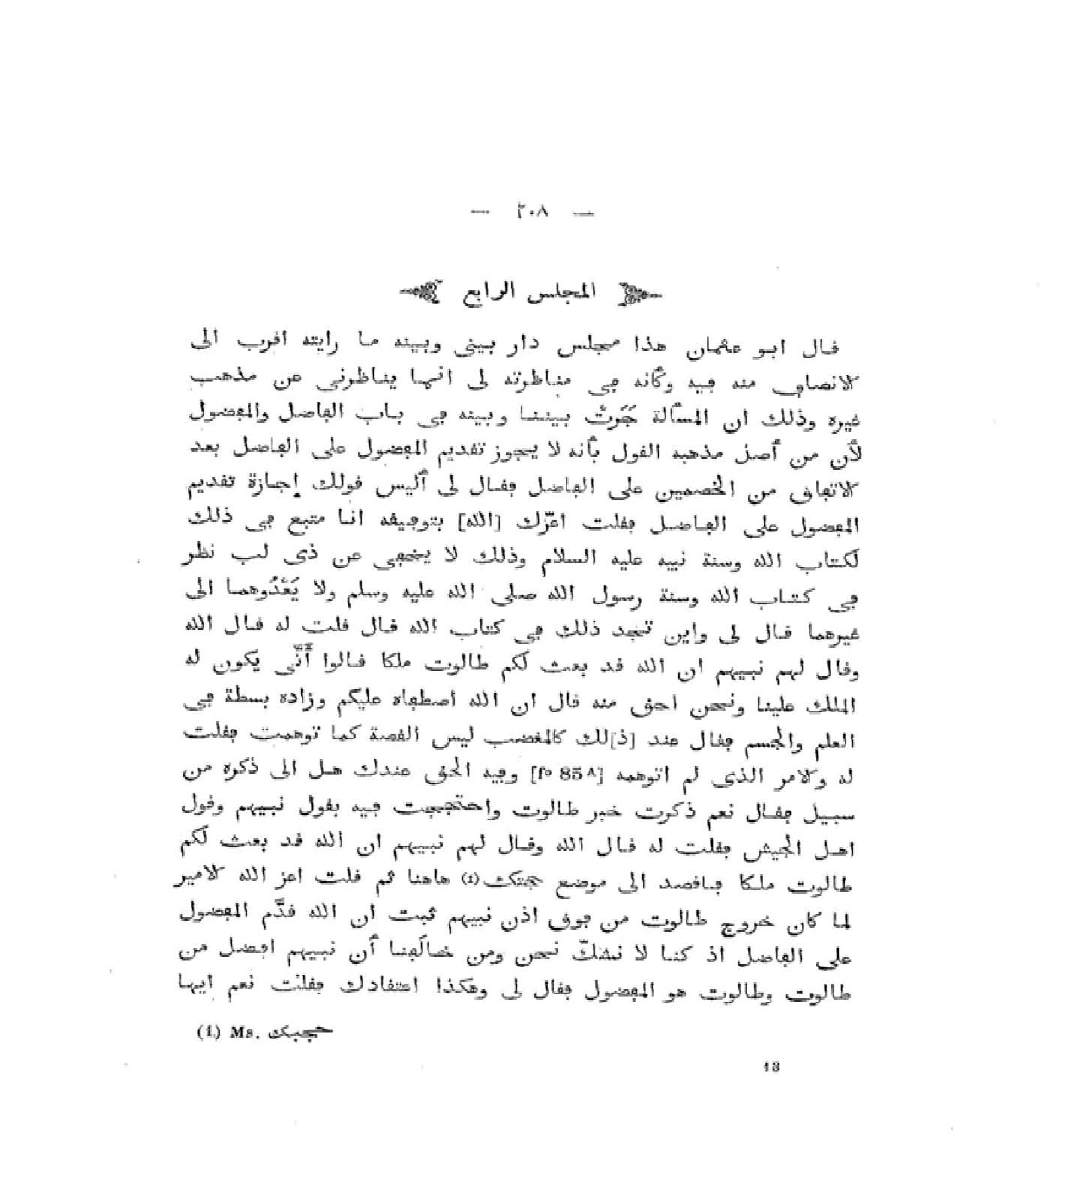 — ٢٠٨ —
المجلس الرابع
قال ابو عثمان هذا مجلس دار بيني وبينه ما رايته اقرب الى
الانصاف منه فيه وكأنه في مناظرته لى انما يناظرنى عن مذهب
غيره وذلك ان المسألة جَرَتْ بيننا وبينه فى باب الفاضل والمفضول
لأن من أصل مذهبه القول بأنه لا يجوز تقديم المفضول على الفاضل بعد
الاتفاق من الخصمين على الفاضل فقال لى أليس قولك إجازة تقديم
المفضول على الفاضل فقلت اعزّك [الله] بتوفيقه انا متبع في ذلك
لكتاب الله وسنة نبيه عليه السلام وذلك لا يخفى عن ذى لب نظر
في كتاب الله وسنة رسول الله صلى الله عليه وسلم ولا يَعْدُوهما الى
غيرهما قال لى واين تجد ذلك في كتاب الله قال قلت له قال الله
وقال لهم نبيهم ان الله قد بعث لكم طالوت ملكا قالوا أَنَّى يكون له
الملك علينا ونحن احق منه قال ان الله اصطفاه عليكم وزاده بسطة في
العلم والجسم فقال عند [ذ]لك كالمغضب ليس القصة كما توهمت فقلت
له والامر الذى لم اتوهمه [fº 85ᴬ] وفيه الحق عندك هل الى ذكره من
سبيل فقال نعم ذكرت خبر طالوت واحتججت فيه بقول نبيهم وقول
اهل الجيش فقلت له قال الله وقال لهم نبيهم ان الله قد بعث لكم
طالوت ملكا فاقصد الى موضع حجتك (1) هاهنا ثم قلت اعز الله الامير
لما كان خروج طالوت من فوق اذن نبيهم ثبت ان الله قدّم المفضول
على الفاضل اذ كنا لا نشكّ نحن ومن خالَفنا أن نبيهم افضل من
طالوت وطالوت هو المفضول فقال لى وهكذا اعتقادك فقلت نعم ايها
(1) Ms. حجبك
13